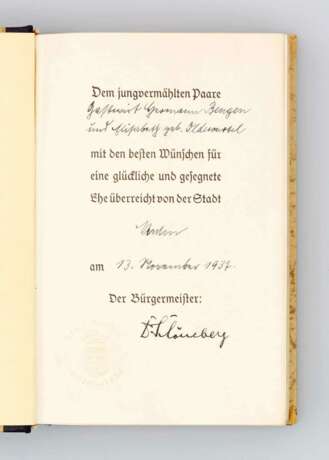 Dem jungvermählten Paare
Gastwirt Hermann Bengen
und Elisabeth geb.
mit den besten Wünschen für
eine glückliche und gesegnete
Ehe überreicht von der Stadt
Norden
am 13. November 1937.
Der Bürgermeister: